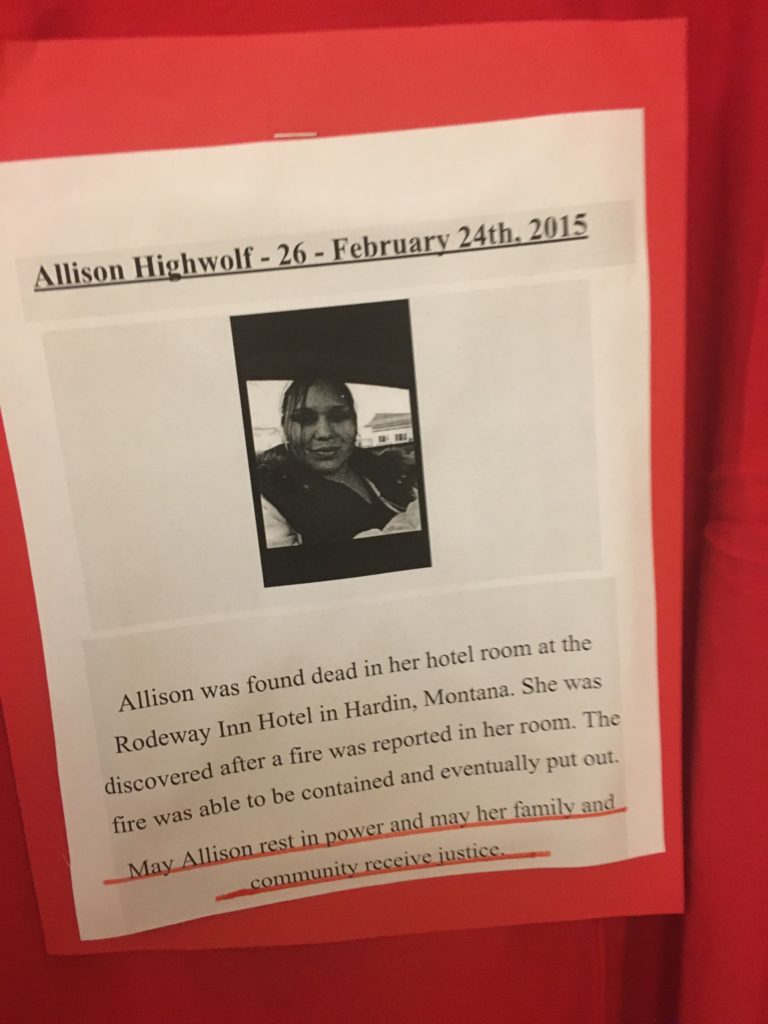 Allison Highwolf - 26 - February 24th, 2015
Allison was found dead in her hotel room at the
Rodeway Inn Hotel in Hardin, Montana. She was
discovered after a fire was reported in her room. The
fire was able to be contained and eventually put out.
May Allison rest in power and may her family and
community receive justice.